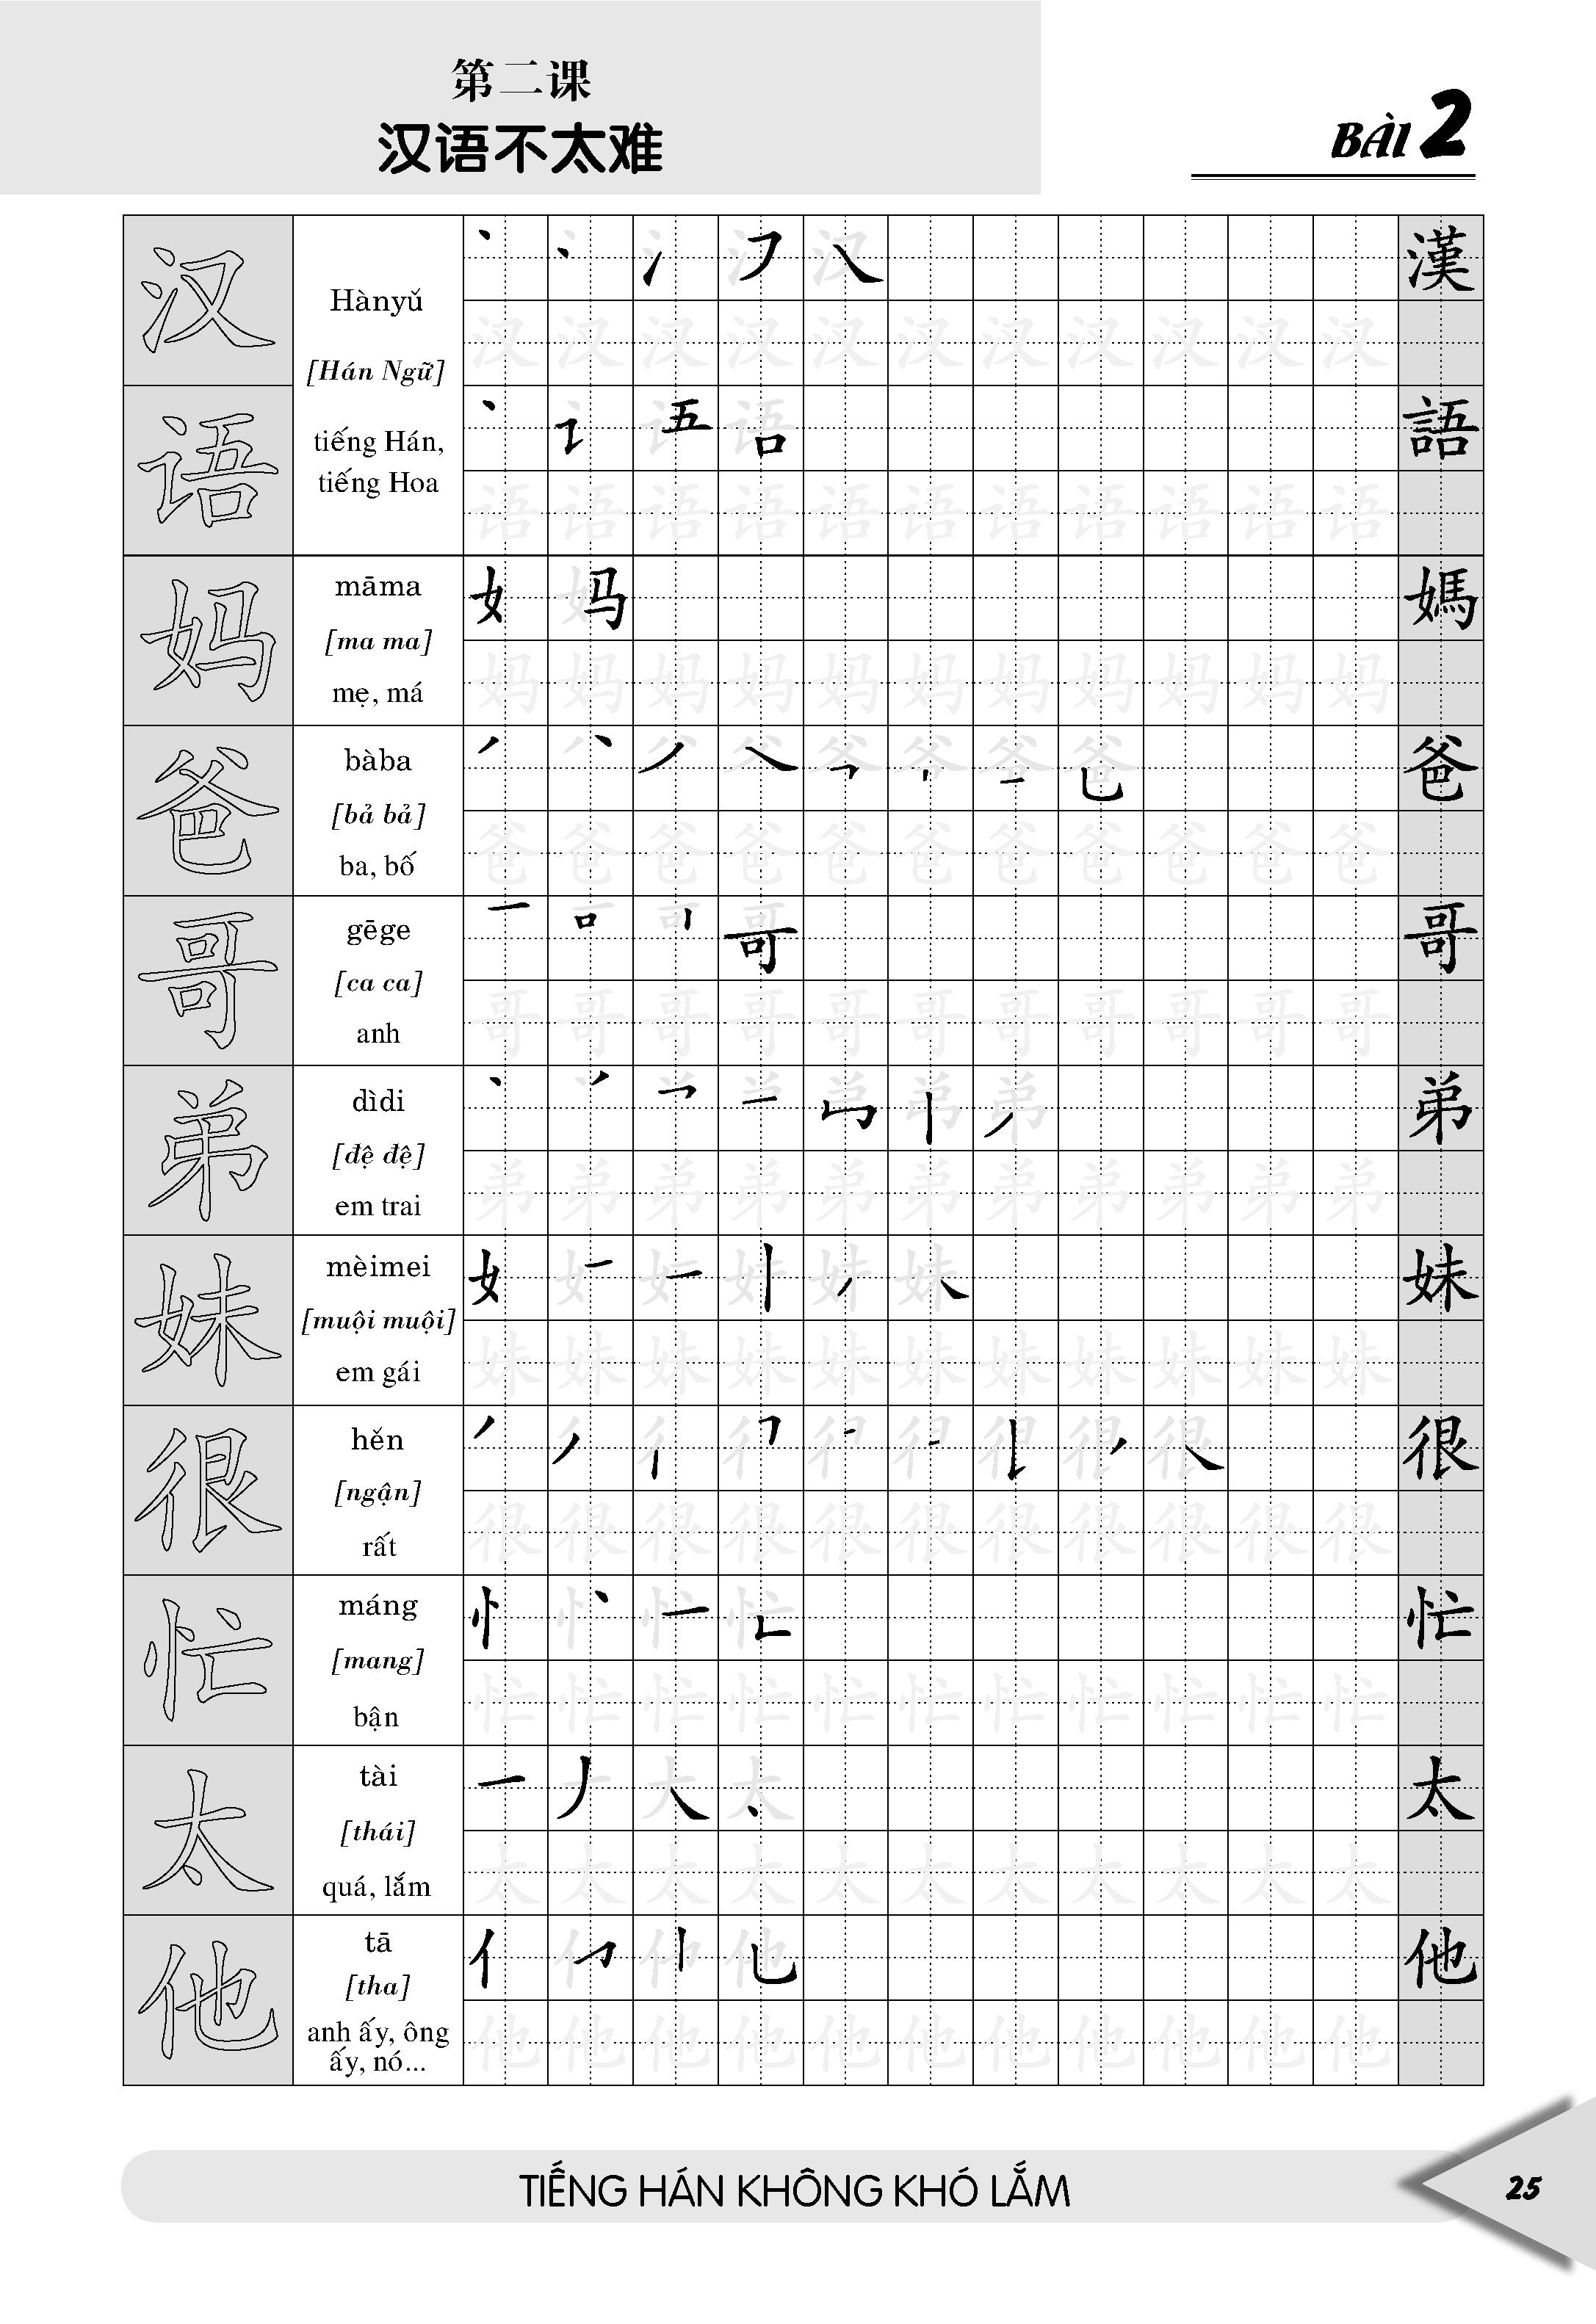 第二课
汉语不太难
BÀI 2
汉
Hànyǔ
[Hán Ngữ]
tiếng Hán,
tiếng Hoa
漢
汉 汉 汉 汉 汉 汉 汉 汉 汉 汉 汉
语
語
语 语 语 语 语 语 语 语 语 语 语
妈
māma
[ma ma]
mẹ, má
媽
妈 妈 妈 妈 妈 妈 妈 妈 妈 妈 妈
爸
bàba
[bả bả]
ba, bố
爸
爸 爸 爸 爸 爸 爸 爸 爸 爸 爸 爸
哥
gēge
[ca ca]
anh
哥
哥 哥 哥 哥 哥 哥 哥 哥 哥 哥 哥
弟
dìdi
[đệ đệ]
em trai
弟
弟 弟 弟 弟 弟 弟 弟 弟 弟 弟 弟
妹
mèimei
[muội muội]
em gái
妹
妹 妹 妹 妹 妹 妹 妹 妹 妹 妹 妹
很
hěn
[ngận]
rất
很
很 很 很 很 很 很 很 很 很 很 很
忙
máng
[mang]
bận
忙
忙 忙 忙 忙 忙 忙 忙 忙 忙 忙 忙
太
tài
[thái]
quá, lắm
太
太 太 太 太 太 太 太 太 太 太 太
他
tā
[tha]
anh ấy, ông
ấy, nó...
他
他 他 他 他 他 他 他 他 他 他 他
TIẾNG HÁN KHÔNG KHÓ LẮM
25